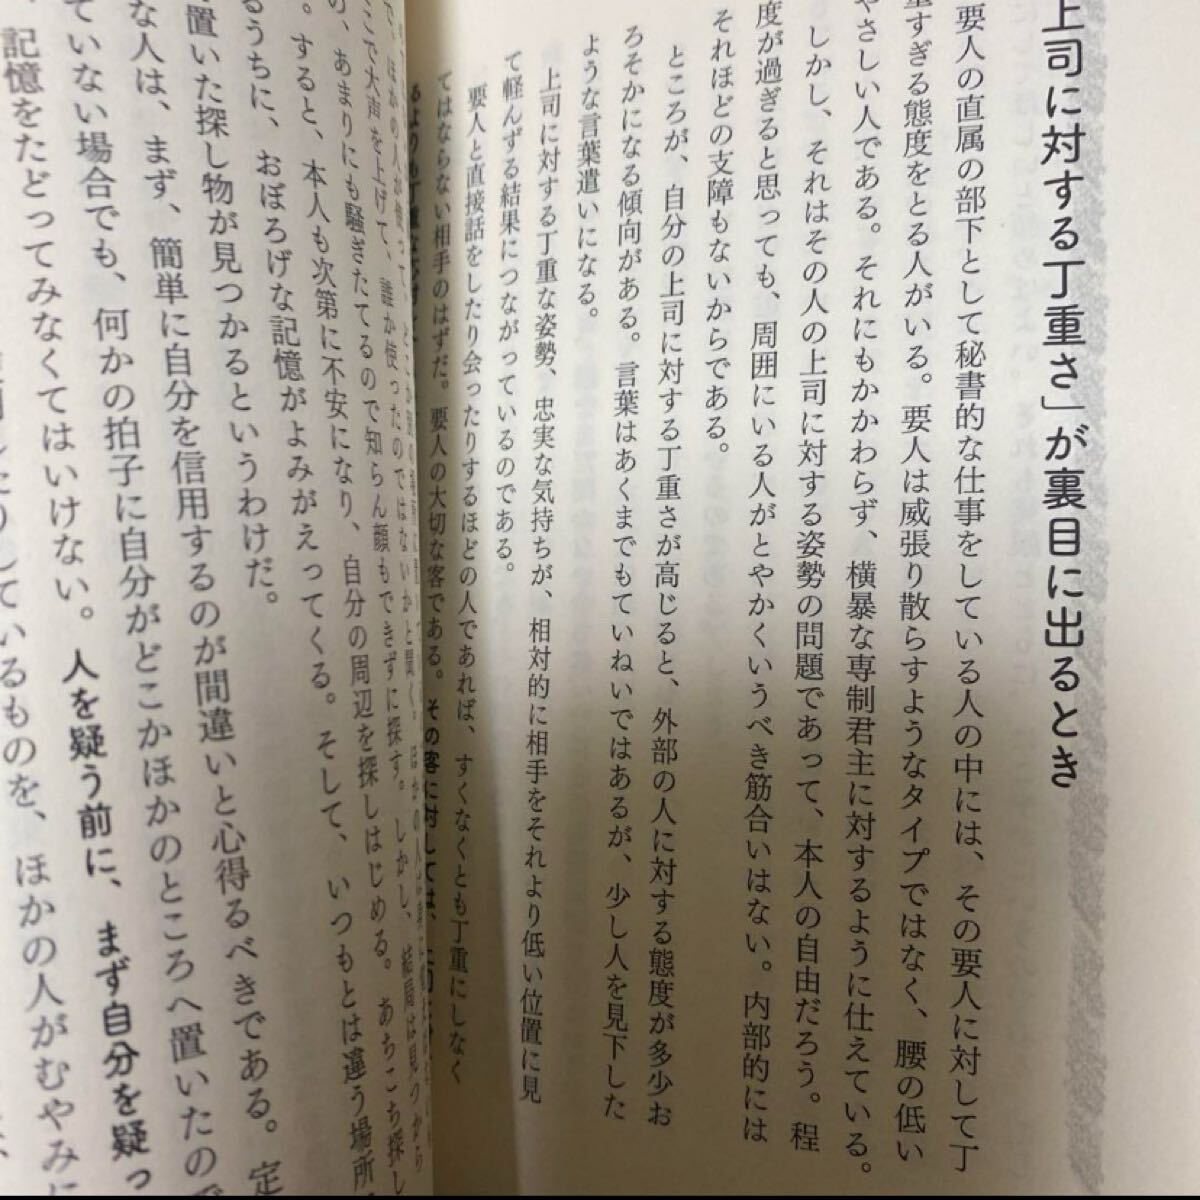 上司に対する丁重さ」が裏目に出るとき
要人の直属の部下として秘書的な仕事をしている人の中には、その要人に対して丁
重すぎる態度をとる人がいる。要人は威張り散らすようなタイプではなく、腰の低い
やさしい人である。それにもかかわらず、横暴な専制君主に対するように仕えている。
しかし、それはその人の上司に対する姿勢の問題であって、本人の自由だろう。程
度が過ぎると思っても、周囲にいる人がとやかくいうべき筋合いはない。内部的には
それほどの支障もないからである。
ところが、自分の上司に対する丁重さが高じると、外部の人に対する態度が多少お
ろそかになる傾向がある。言葉はあくまでもていねいではあるが、少し人を見下した
ような言葉遣いになる。
上司に対する丁重な姿勢、忠実な気持ちが、相対的に相手をそれより低い位置に見
て軽んずる結果につながっているのである。
要人と直接話をしたり会ったりするほどの人であれば、すくなくとも丁重にしなく
てはならない相手のはずだ。要人の大切な客である。その客に対しては、
誰か使ったのではないかと聞く。ほかの人は
ここで大声を上げて、
の、あまりにも騒ぎたてるので知らん顔もできずに探す。しかし、結局は見つから
。すると、本人も次第に不安になり、自分の周辺を探しはじめる。あちこち探し
るうちに、おぼろげな記憶がよみがえってくる。そして、いつもとは違う場所
置いた探し物が見つかるというわけだ。
な人は、まず、簡単に自分を信用するのが間違いと心得るべきである。定
ていない場合でも、何かの拍子に自分がどこかほかのところへ置いたので
記憶をたどってみなくてはいけない。人を疑う前に、まず自分を疑っ
しているものを、ほかの人がむやみに